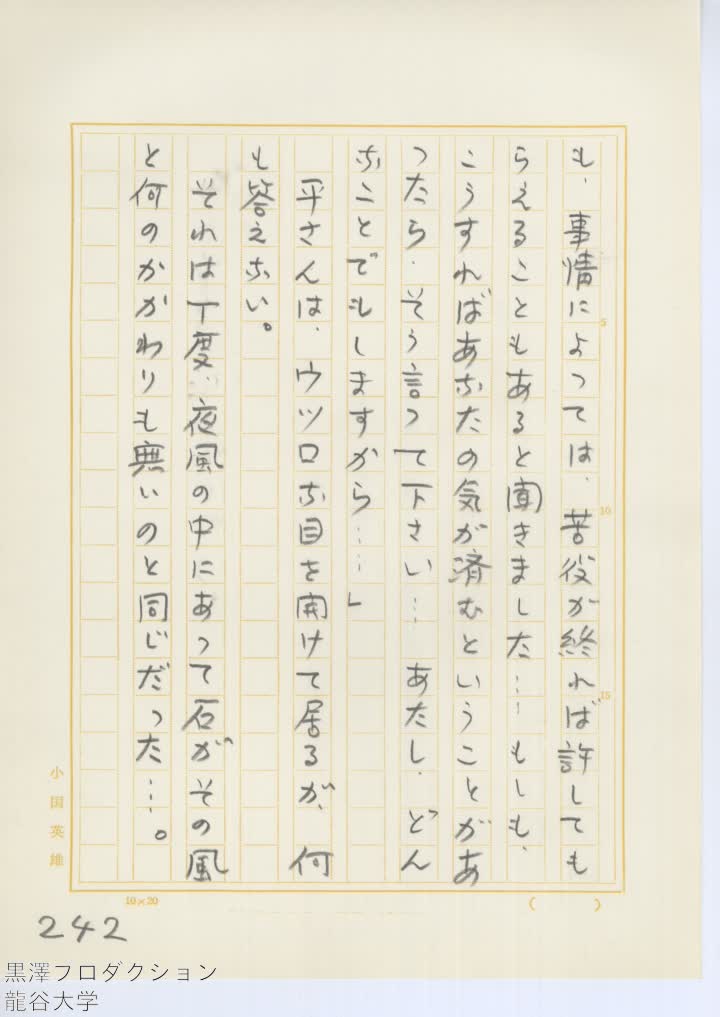 も、事情によつては、苦役が終れば許しても
らえることもあると聞きました……もしも、
こうすればあなたの気が済むということがあ
つたら、そう言つて下さい……あたし、どん
なことでもしますから……」
平さんは、ウツロな目を開けて居るが、何
も答えない。
それは丁度、夜風の中にあつて石がその風
と何のかかわりも無いのと同じだつた…。
小国英雄
5
10
15
10×20
(　　)
242
黒澤フロダクション
龍谷大学